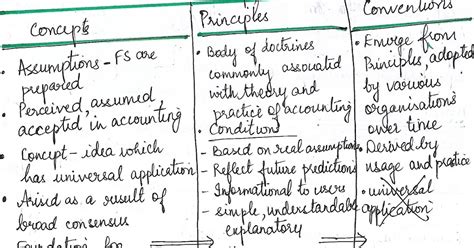 Concepts
• Assumptions - FS are
prepared
• Perceived, assumed
accepted in accounting
• Concept - idea which
has universal application
• Arised as a result of
broad consensus
Foundation for
Principles
• Body of doctrines
commonly associated
with theory and
practice of accounting
• Conditions
- Based on real assumptions
- Reflect future predictions
- Informational to users
- simple, understandable
explanatory
Conventions
• Emerge from
Principles, adopted
by various
organisations
over time
• Derived by
usage and practice
• universal
application